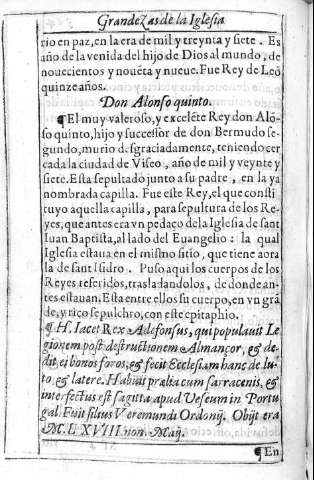 Grandezas de la Iglesia
rio en paz, en la era de mil y treynta y siete. Es
año de la venida del hijo de Dios al mundo, de
nouecientos y nouẽta y nueue. Fue Rey de Leõ
quinze años.
Don Alonso quinto.
¶El muy valeroso, y excelẽte Rey don Alõ-
so quinto, hijo y successor de don Bermudo se-
gundo, murio desgraciadamente, teniendo cer
cada la ciudad de Viseo, año de mil y veynte y
siete. Esta sepultado junto a su padre, en la ya
nombrada capilla. Fue este Rey, el que consti
tuyo aquella capilla, para sepultura de los Re-
yes, que antes era vn pedaço de la Iglesia de sant
Iuan Baptista, al lado del Euangelio: la qual
Iglesia estaua en el mismo sitio, que tiene aora
la de sant Isidro. Puso aqui los cuerpos de los
Reyes referidos, trasladandolos, de donde an-
tes estauan. Esta entre ellos su cuerpo, en vn grã
de, y rico sepulchro, con este epitaphio.
¶H. Iacet Rex Adefonsus, qui populauit Le
gionem post destructionem Almançor, & de-
dit ei bonos foros, & fecit Ecclesiam hanc de lu-
to, & latere. Habuit prælia cum sarracenis, &
interfectus est sagitta apud Veseum in Portu
gal. Fuit filius Veremundi Ordonij. Obijt era
M. LXVIII. non. Maij.
¶En